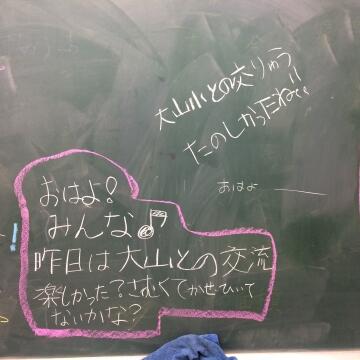 大山小との交りゅう
たのしかったね!!
おはよ
おはよ!
みんな♪
昨日は大山との交流
楽しかった?さむくてかぜひいて
ないかな?